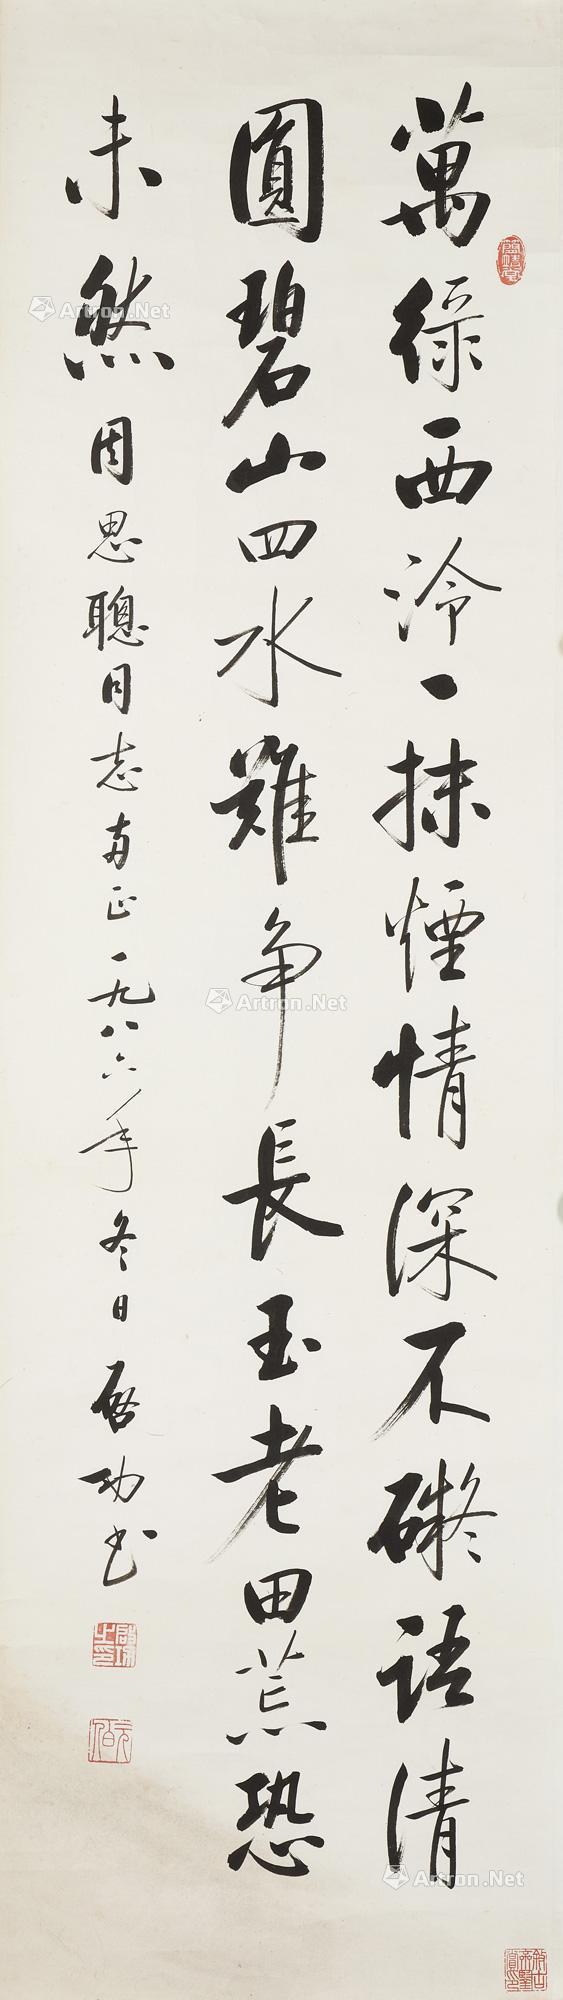 萬綠西泠一抹煙情深不礙語清
圓碧山四水難争長玉老田荒恐
未然周思聰同志两正一九八六年冬日启功书
Artron.Net
Artron.Net
Artron.Net